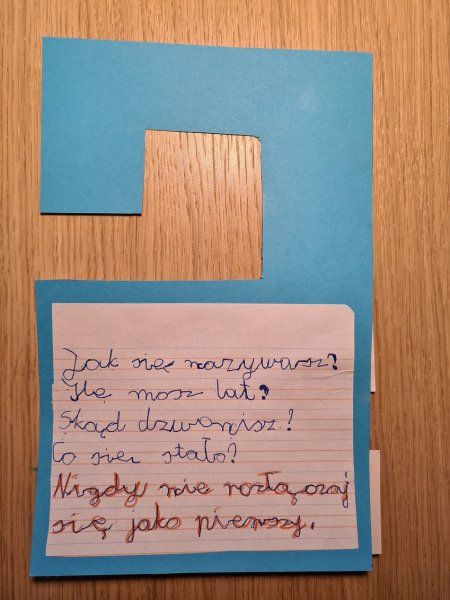 Jak się nazywasz?
Ilę masz lat?
Skąd dzwonisz!
Co sier stało?
Nigdy nie rozłączaj
się jako pierwszy.